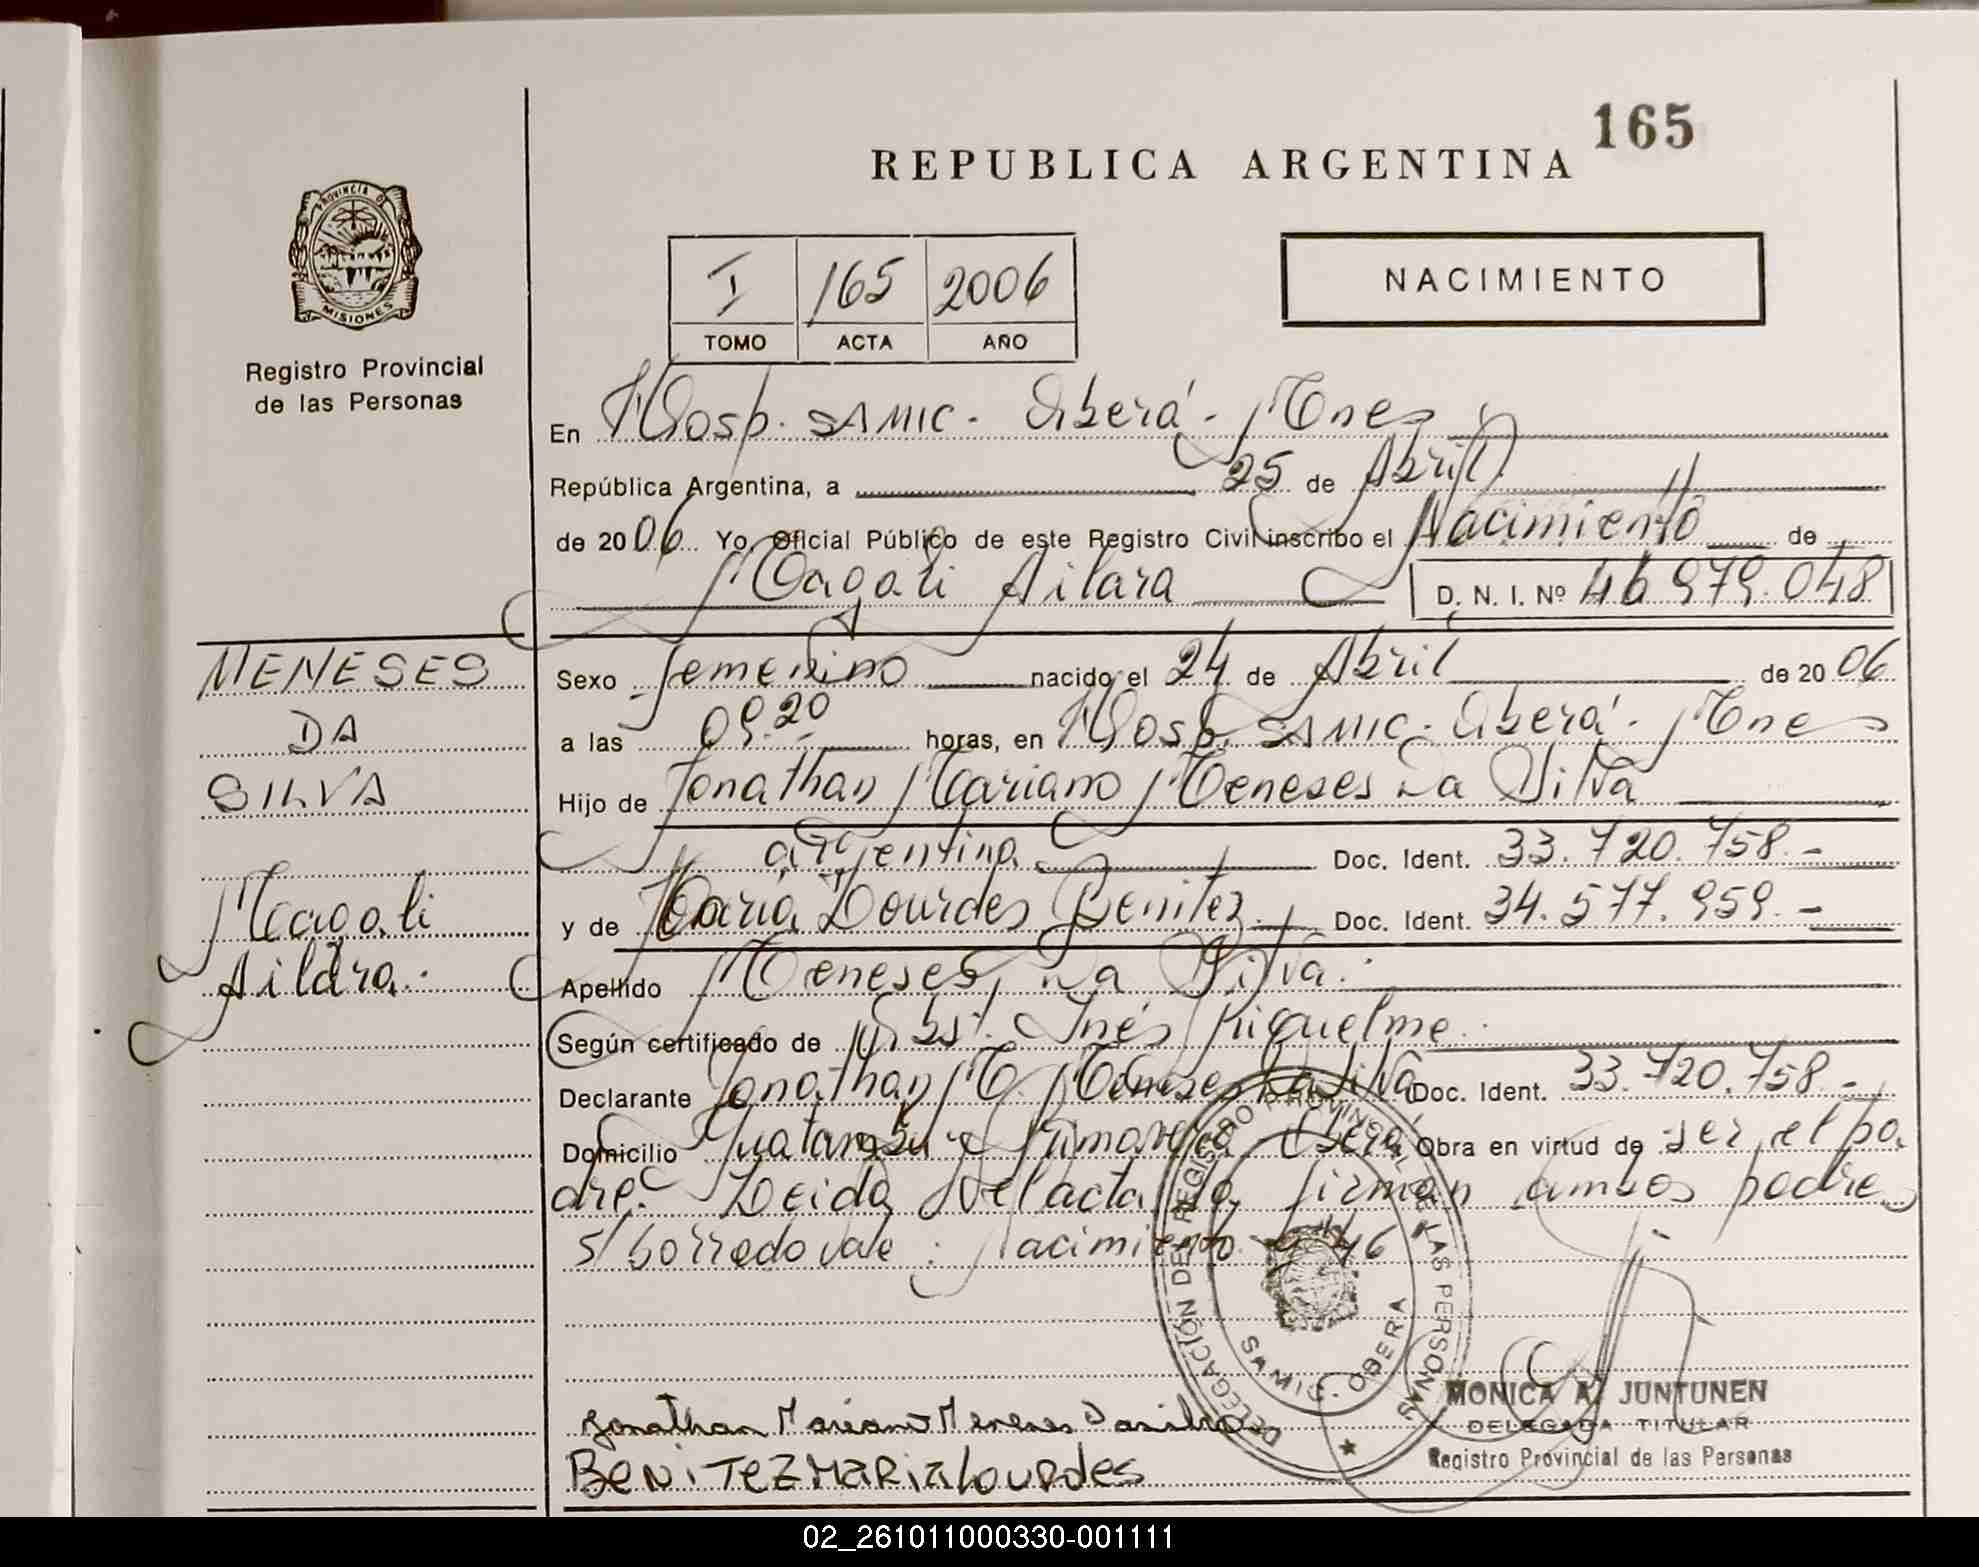 165
REPUBLICA ARGENTINA
PROVINCIA DE MISIONES
Registro Provincial
de las Personas
I 165 2006
TOMO ACTA AÑO
NACIMIENTO
En Hosp. SAMIC - Oberá - Mnes
República Argentina, a 25 de Abril
de 2006 Yo, Oficial Público de este Registro Civil inscribo el Nacimiento de
Magali Ailara D. N. I. Nº 46.979.048
MENESES
DA
SILVA
Magali
Ailara.
Sexo femenino nacido el 24 de Abril de 2006
a las 09.20 horas, en Hosp. SAMIC - Oberá - Mnes
Hijo de Jonathan Mariano Meneses Da Silva
argentina Doc. Ident. 33.720.758.-
y de María Lourdes Benitez Doc. Ident. 34.577.959.-
Apellido Meneses Da Silva.
Según certificado de Obst. Inés Riquelme.
Declarante Jonathan M. Meneses Da Silva Doc. Ident. 33.720.758.-
Domicilio Guatambu y Oberá Obra en virtud de ser el pa
dre. Leida el acta la firman ambos padres
s/borrado vale: Nacimiento - 46
DELEGACIÓN DEL REGISTRO PROVINCIAL DE LAS PERSONAS
SAMIC - OBERA
Jonathan Mariano Meneses Dasilva
BENITEZ MARIA LOURDES
MONICA A. JUNTUNEN
DELEGADA TITULAR
Registro Provincial de las Personas
02_261011000330-001111